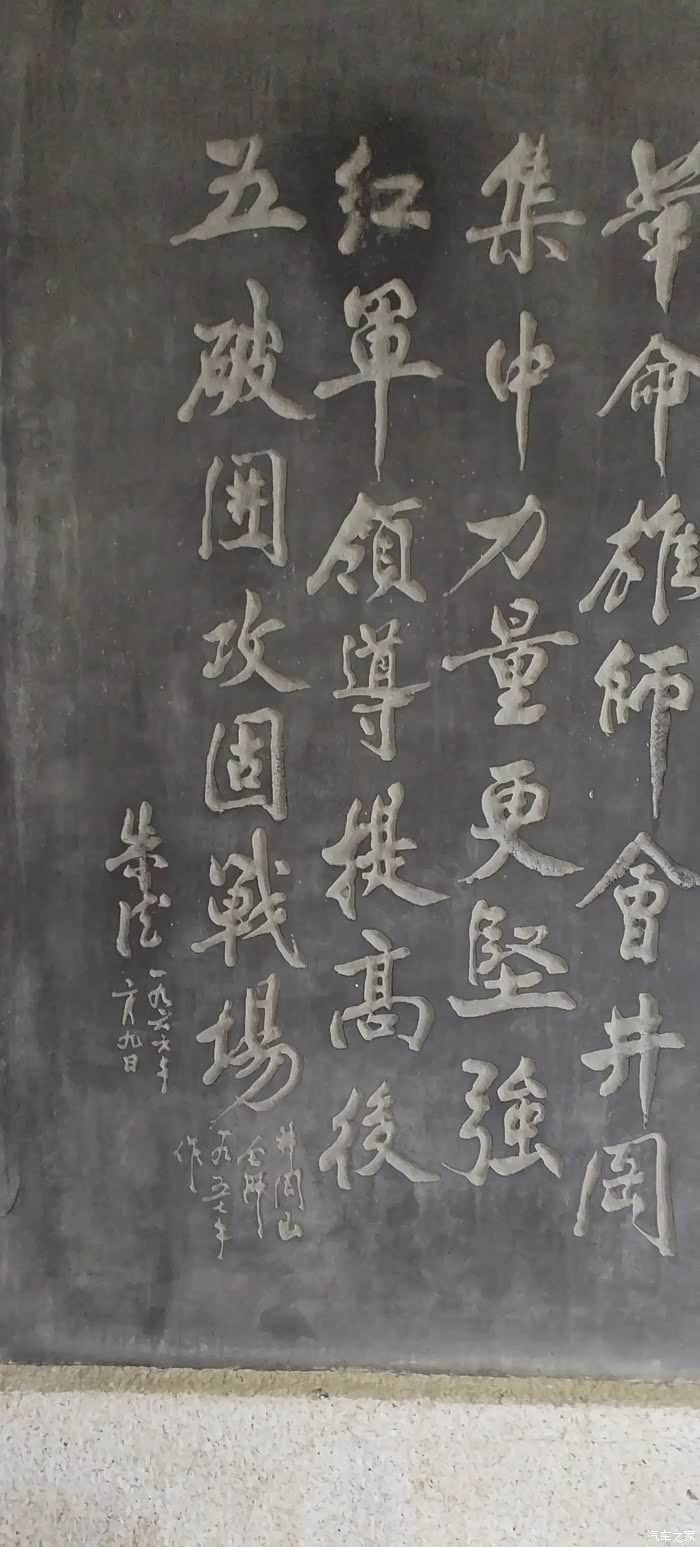 革命雄師會井岡
集中力量更堅強
紅軍領導提高後
五破圍攻固戰場
井岡山
會師
一九五七年
作
朱德
一九六六年
二月九日
汽车之家